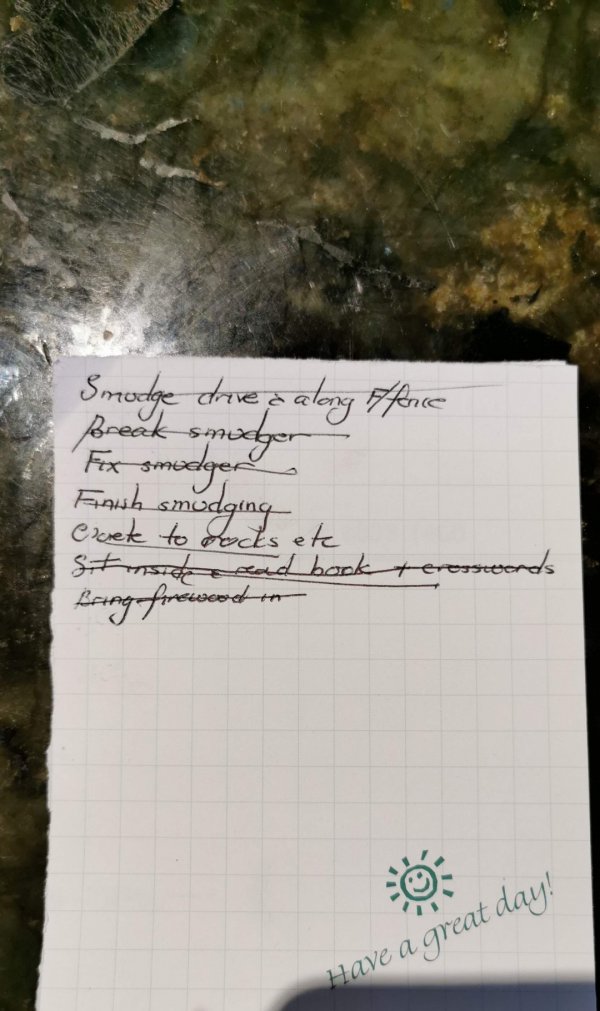 Smudge drive & along F/fence
Break smudger
Fix smudger
Finish smudging
to rocks etc
Sit inside & read book + crosswords
Bring firewood in
Have a great day!